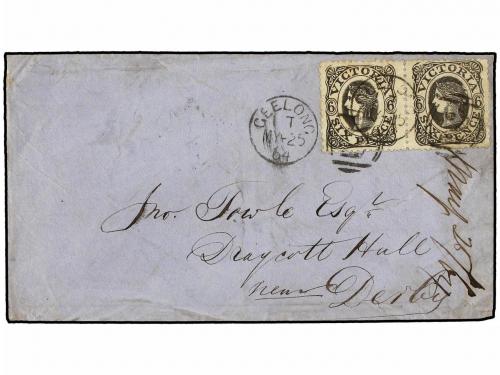 VICTORIA
6 6
SIX PENCE
VICTORIA
6 6
SIX PENCE
GEELONG
T
MY 25
64
Jno. Towle Esqr.
Draycott Hall
near Derby